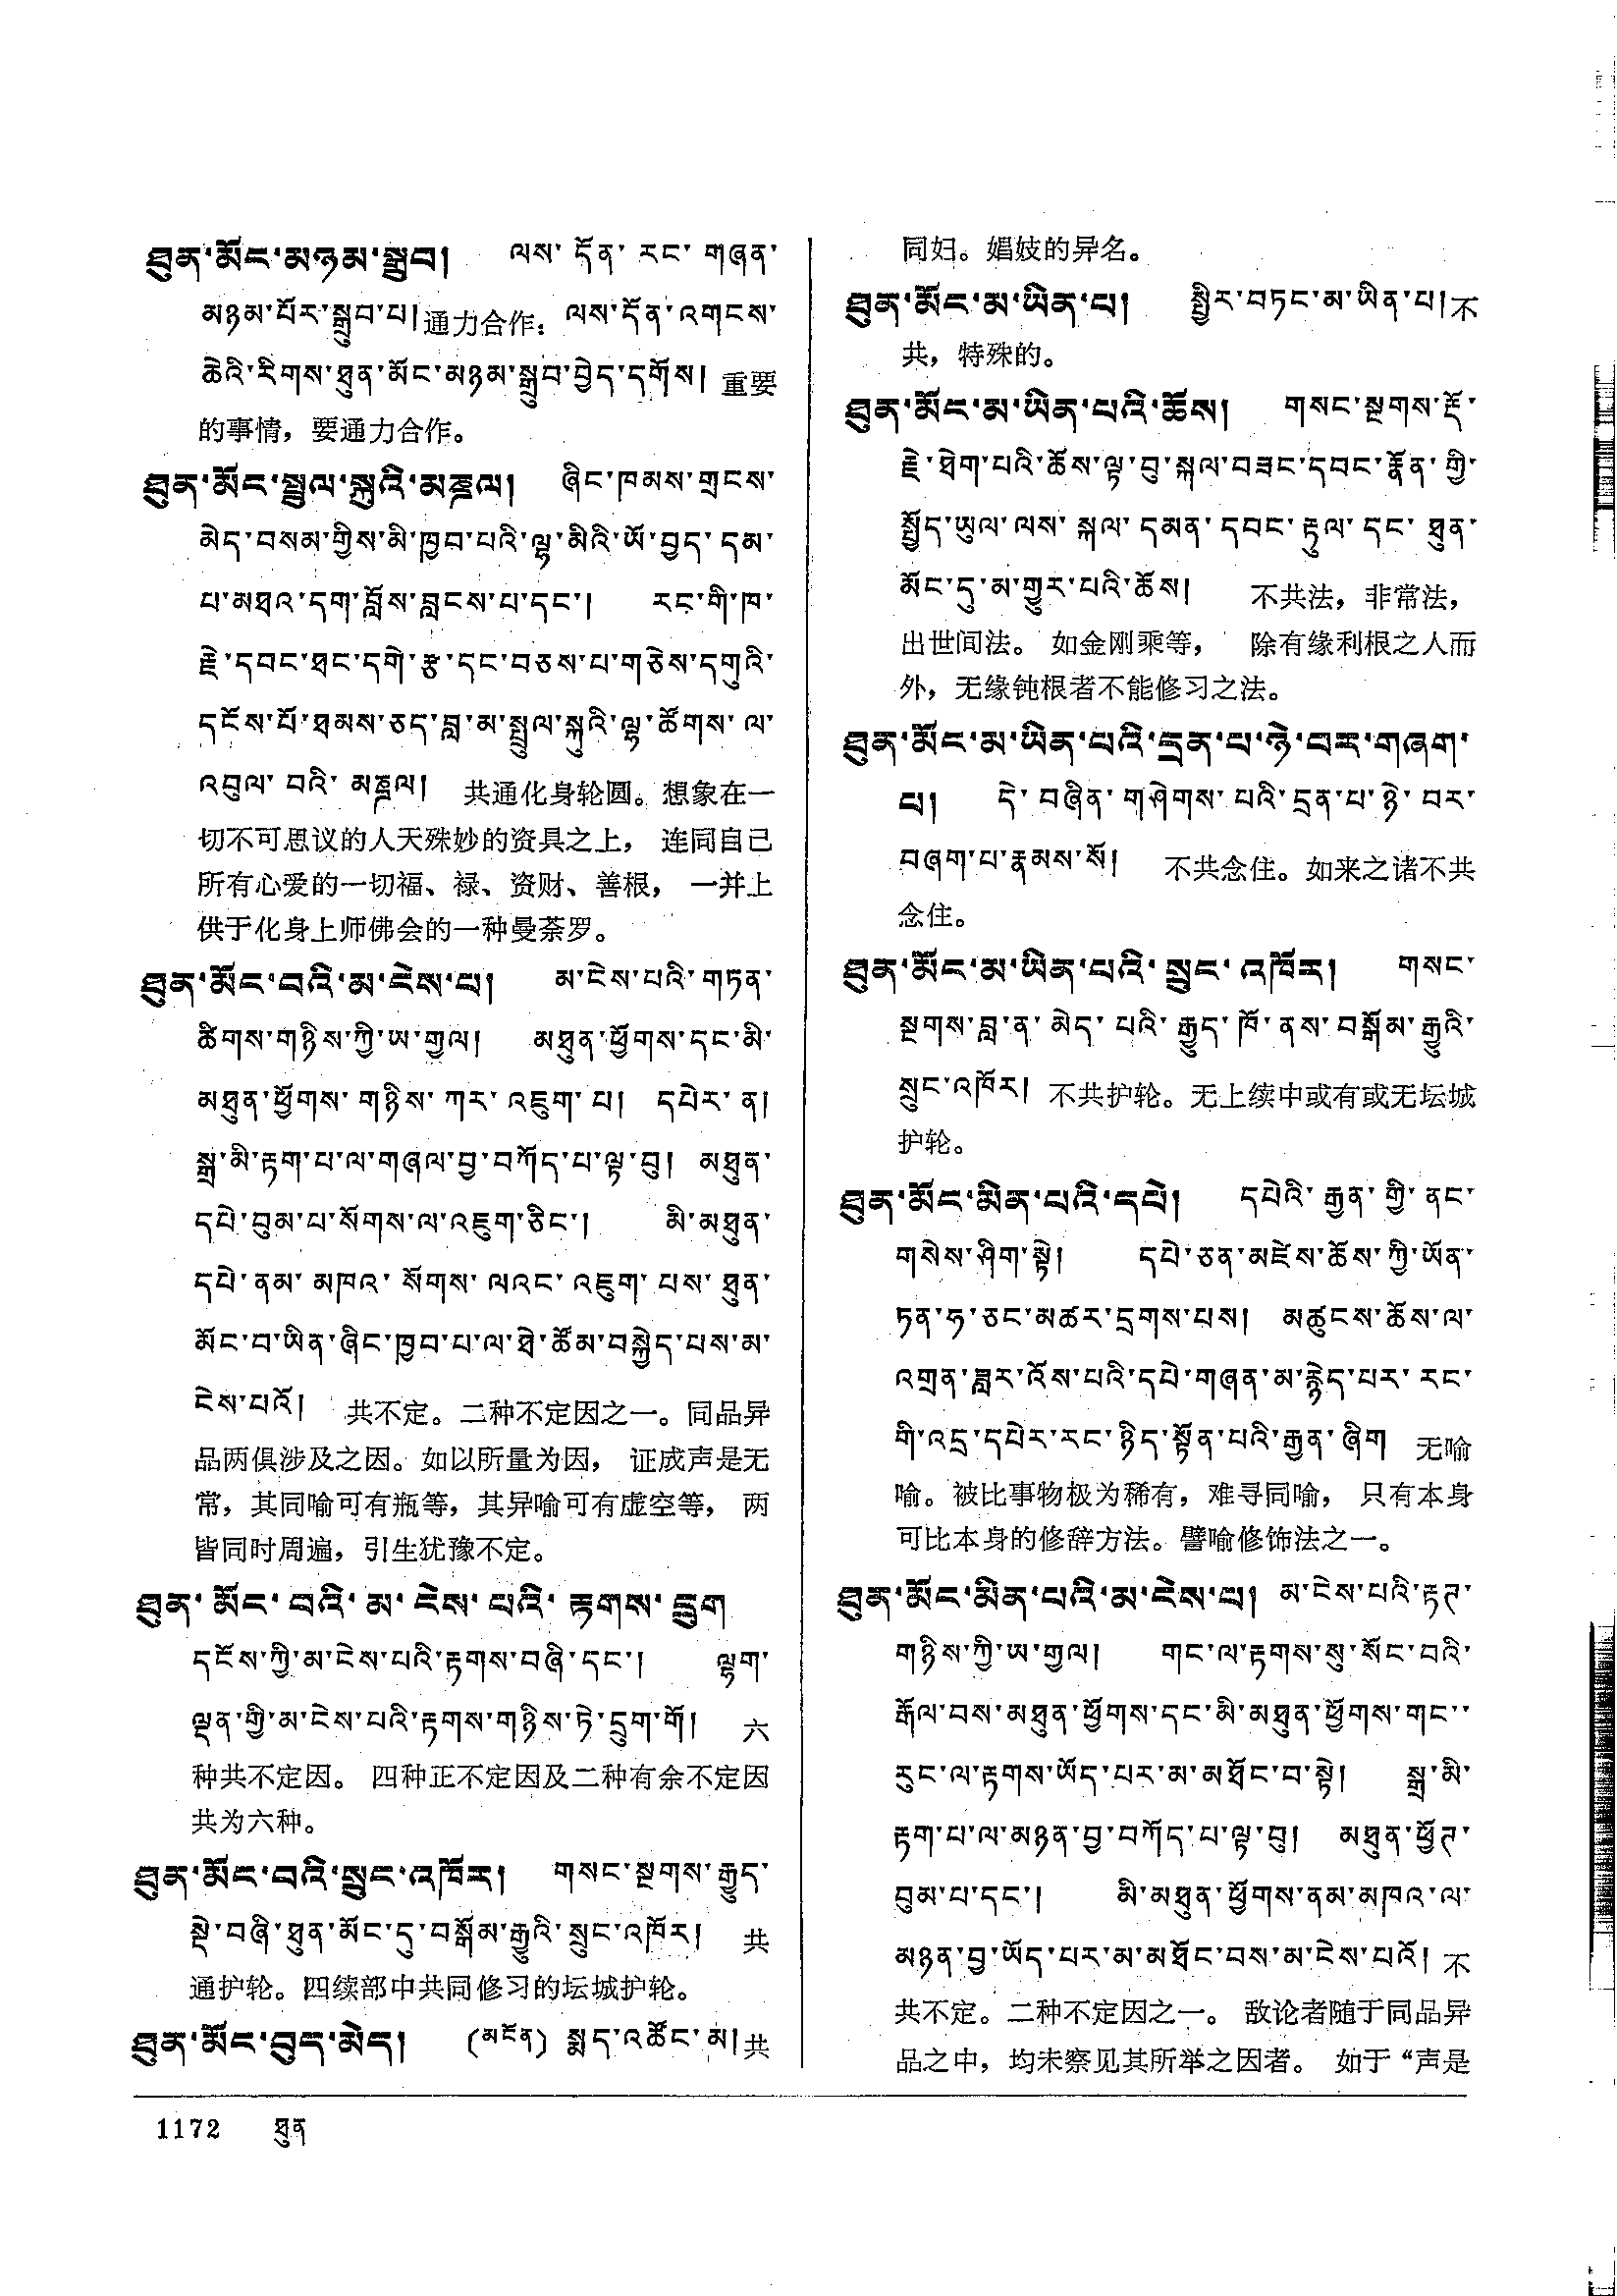 ཐུན་མོང་མཉམ་སྒྲུབ། ལས་ དོན་ རང་ གཞན་
མཉམ་པོར་སྒྲུབ་པ། 通力合作： ལས་དོན་འགངས་
ཆེའི་རིགས་ཐུན་མོང་མཉམ་སྒྲུབ་བྱེད་དགོས། 重要
的事情，要通力合作。
ཐུན་མོང་སྤྲུལ་སྐུའི་མཎྜལ། ཞིང་ཁམས་གྲངས་
མེད་བསམ་གྱིས་མི་ཁྱབ་པའི་ལྷ་མིའི་ཡོ་བྱད་དམ་
པ་མཐའ་དག་བློས་བླངས་པ་དང་། རང་གི་ཁ་
རྗེ་དབང་ཐང་དགེ་རྩ་དང་བཅས་པ་གཅེས་དགུའི་
དངོས་པོ་ཐམས་ཅད་བླ་མ་སྤྲུལ་སྐུའི་ལྷ་ཚོགས་ལ་
འབུལ་ བའི་ མཎྜལ། 共通化身轮圆。想象在一
切不可思议的人天殊妙的资具之上， 连同自己
所有心爱的一切福、禄、资财、善根， 一并上
供于化身上师佛会的一种曼荼罗。
ཐུན་མོང་བའི་མ་ངེས་པ། མ་ངེས་པའི་གཏན་
ཚིགས་གཉིས་ཀྱི་ཡ་གྱལ། མཐུན་ཕྱོགས་དང་མི་
མཐུན་ཕྱོགས་ གཉིས་ ཀར་ འཇུག་ པ། དཔེར་ ན།
སྒྲ་མི་རྟག་པ་ལ་གཞལ་བྱ་བཀོད་པ་ལྟ་བུ། མཐུན་
དཔེ་བུམ་པ་སོགས་ལ་འཇུག་ཅིང་། མི་མཐུན་
དཔེ་ནམ་ མཁའ་ སོགས་ ལའང་ འཇུག་ པས་ ཐུན་
མོང་བ་ཡིན་ཞིང་ཁྱབ་པ་ལ་ཐེ་ཚོམ་བསྐྱེད་པས་མ་
ངེས་པའོ། 共不定。二种不定因之一。同品异
品两俱涉及之因。如以所量为因， 证成声是无
常，其同喻可有瓶等，其异喻可有虚空等， 两
皆同时周遍，引生犹豫不定。
ཐུན་ མོང་ བའི་ མ་ ངེས་ པའི་ རྟགས་ དྲུག
དངོས་ཀྱི་མ་ངེས་པའི་རྟགས་བཞི་དང་། ལྷག་
ལྡན་གྱི་མ་ངེས་པའི་རྟགས་གཉིས་ཏེ་དྲུག་གོ། 六
种共不定因。 四种正不定因及二种有余不定因
共为六种。
ཐུན་མོང་བའི་སྲུང་འཁོར། གསང་སྔགས་རྒྱུད་
སྡེ་བཞི་ཐུན་མོང་དུ་བསྒོམ་རྒྱུའི་སྲུང་འཁོར། 共
通护轮。四续部中共同修习的坛城护轮。
ཐུན་མོང་བུད་མེད། (མངོན) སྨད་འཚོང་མ། 共
同妇。娼妓的异名。
ཐུན་མོང་མ་ཡིན་པ། སྤྱིར་བཏང་མ་ཡིན་པ། 不
共，特殊的。
ཐུན་མོང་མ་ཡིན་པའི་ཆོས། གསང་སྔགས་རྡོ་
རྗེ་ཐེག་པའི་ཆོས་ལྟ་བུ་སྐལ་བཟང་དབང་རྣོན་གྱི་
སྤྱོད་ཡུལ་ལས་ སྐལ་ དམན་ དབང་ རྟུལ་ དང་ ཐུན་
མོང་དུ་མ་གྱུར་པའི་ཆོས། 不共法，非常法，
出世间法。 如金刚乘等， 除有缘利根之人而
外，无缘钝根者不能修习之法。
ཐུན་མོང་མ་ཡིན་པའི་དྲན་པ་ཉེ་བར་གཞག་
པ། དེ་ བཞིན་ གཤེགས་ པའི་ དྲན་པ་ ཉེ་ བར་
བཞག་པ་རྣམས་སོ། 不共念住。如来之诸不共
念住。
ཐུན་མོང་མ་ཡིན་པའི་ སྲུང་ འཁོར། གསང་
སྔགས་བླ་ན་ མེད་ པའི་ རྒྱུད་ ཁོ་ ནས་ བསྒོམ་ རྒྱུའི་
སྲུང་འཁོར། 不共护轮。无上续中或有或无坛城
护轮。
ཐུན་མོང་མིན་པའི་དཔེ། དཔེའི་ རྒྱན་ གྱི་ ནང་
གསེས་ཤིག་སྟེ། དཔེ་ཅན་མཛེས་ཆོས་ཀྱི་ཡོན་
ཏན་ཧ་ཅང་མཚར་དྲགས་པས། མཚུངས་ཆོས་ལ་
འགྲན་ཟླར་འོས་པའི་དཔེ་གཞན་མ་རྙེད་པར་རང་
གི་འདྲ་དཔེར་རང་ཉིད་སྟོན་པའི་རྒྱན་ཞིག 无喻
喻。被比事物极为稀有，难寻同喻， 只有本身
可比本身的修辞方法。譬喻修饰法之一。
ཐུན་མོང་མིན་པའི་མ་ངེས་པ། མ་ངེས་པའི་རྟཊ་
གཉིས་ཀྱི་ཡ་གྱལ། གང་ལ་རྟགས་སུ་སོང་བའི་
རྒོལ་བས་མཐུན་ཕྱོགས་དང་མི་མཐུན་ཕྱོགས་གང་་
རུང་ལ་རྟགས་ཡོད་པར་མ་མཐོང་བ་སྟེ། སྒྲ་མི་
རྟག་པ་ལ་མཉན་བྱ་བཀོད་པ་ལྟ་བུ། མཐུན་ཕྱོཊ་
བུམ་པ་དང་། མི་མཐུན་ཕྱོགས་ནམ་མཁའ་ལ་
མཉན་བྱ་ཡོད་པར་མ་མཐོང་བས་མ་ངེས་པའོ། 不
共不定。二种不定因之一。 敌论者随于同品异
品之中，均未察见其所举之因者。 如于“声是
1172 ཐུན